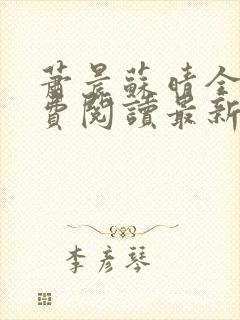 蕭晨蘇晴全
費閱讀最新
李彥琴